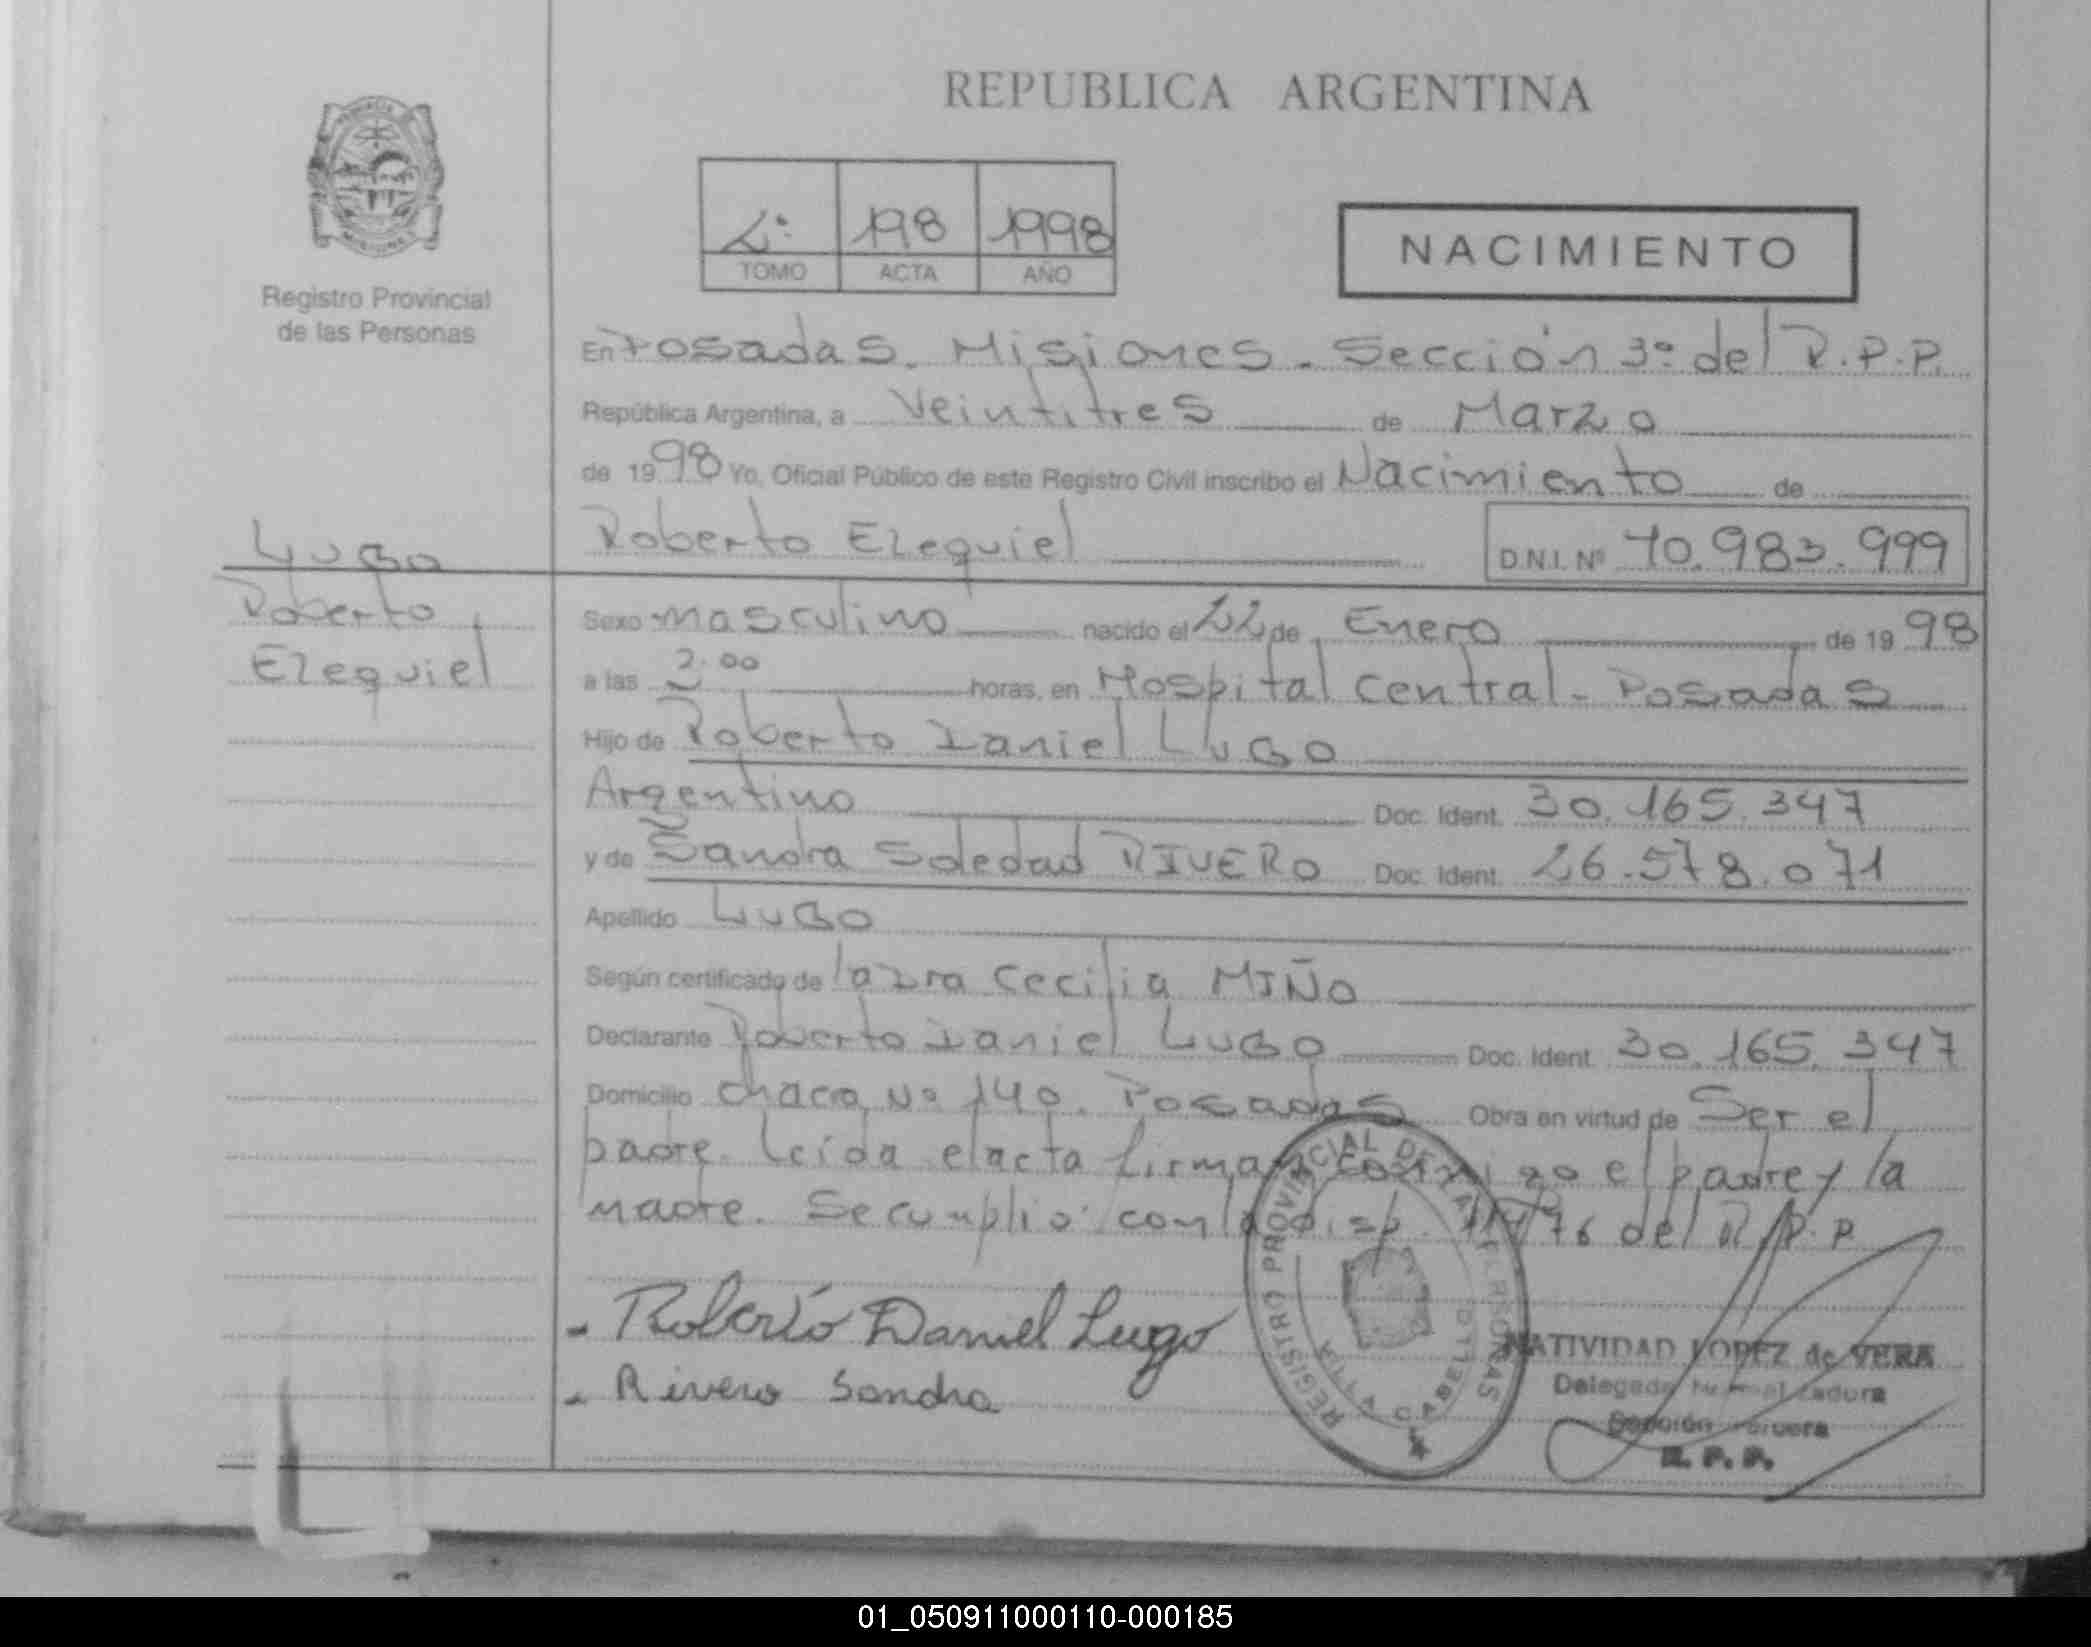 REPUBLICA ARGENTINA
Registro Provincial
de las Personas
2º 198 1998
TOMO ACTA AÑO
NACIMIENTO
En Posadas. Misiones - Sección 3º del R.P.P.
República Argentina, a Veintitres de Marzo
de 1998 Yo, Oficial Público de este Registro Civil inscribo el Nacimiento de
Roberto Ezequiel D.N.I. Nº 40.983.999
LUGO
Roberto
Ezequiel
Sexo masculino nacido el 22 de Enero de 1998
a las 2.00 horas, en Hospital Central - Posadas
Hijo de Roberto Daniel LUGO
Argentino Doc. Ident. 30.165.347
y de Sandra Soledad RIVERO Doc. Ident. 26.578.071
Apellido LUGO
Según certificado de la Dra Cecilia MIÑO
Declarante Roberto Daniel LUGO Doc. Ident. 30.165.347
Domicilio Chacra Nº 140. Posadas Obra en virtud de Ser el
padre. Leída el acta firman conmigo el padre y la
madre. Se cumplió con la Disp. /76 del R.P.P
- Roberto Daniel Lugo
- Rivero Sandra
REGISTRO PROVINCIAL DE LAS PERSONAS
VILLA CABELLO
NATIVIDAD LOPEZ de VERA
Delegada
Sección Tercera
R. P. P.
01_050911000110-000185